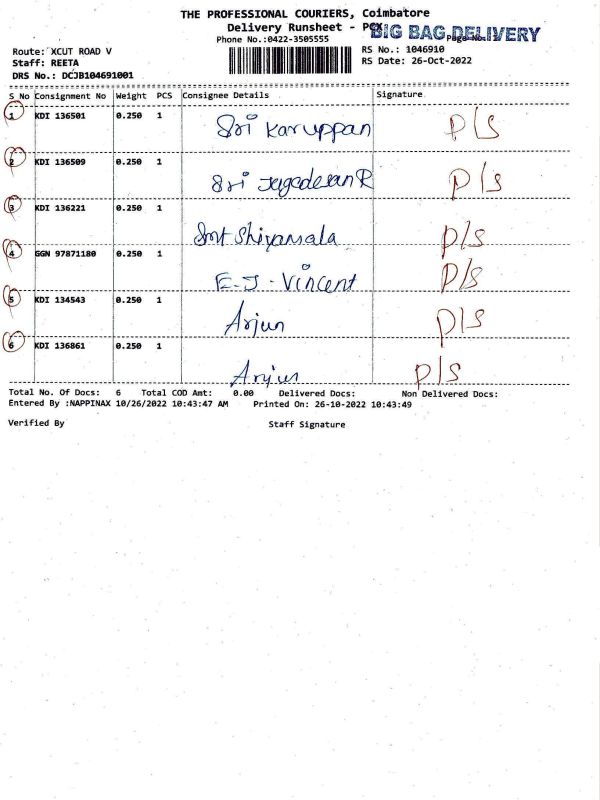 THE PROFESSIONAL COURIERS, Coimbatore
Delivery Runsheet - PCX
BIG BAG DELIVERY
Phone No.:0422-3505555
Page No.
Route: XCUT ROAD V
RS No.: 1046910
Staff: REETA
RS Date: 26-Oct-2022
DRS No.: DCJB104691001
S No Consignment No Weight PCS Consignee Details Signature
1 KDI 136501 0.250 1 Sri Karuppan P/S
2 KDI 136509 0.250 1 Sri Jagadesan R P/S
3 KDI 136221 0.250 1 Smt Shiyamala P/S
4 GGN 97871180 0.250 1 E. J. Vincent P/S
5 KDI 134543 0.250 1 Arjun P/S
6 KDI 136861 0.250 1 Arjun P/S
Total No. Of Docs: 6 Total COD Amt: 0.00 Delivered Docs: Non Delivered Docs:
Entered By :NAPPINAX 10/26/2022 10:43:47 AM Printed On: 26-10-2022 10:43:49
Verified By Staff Signature